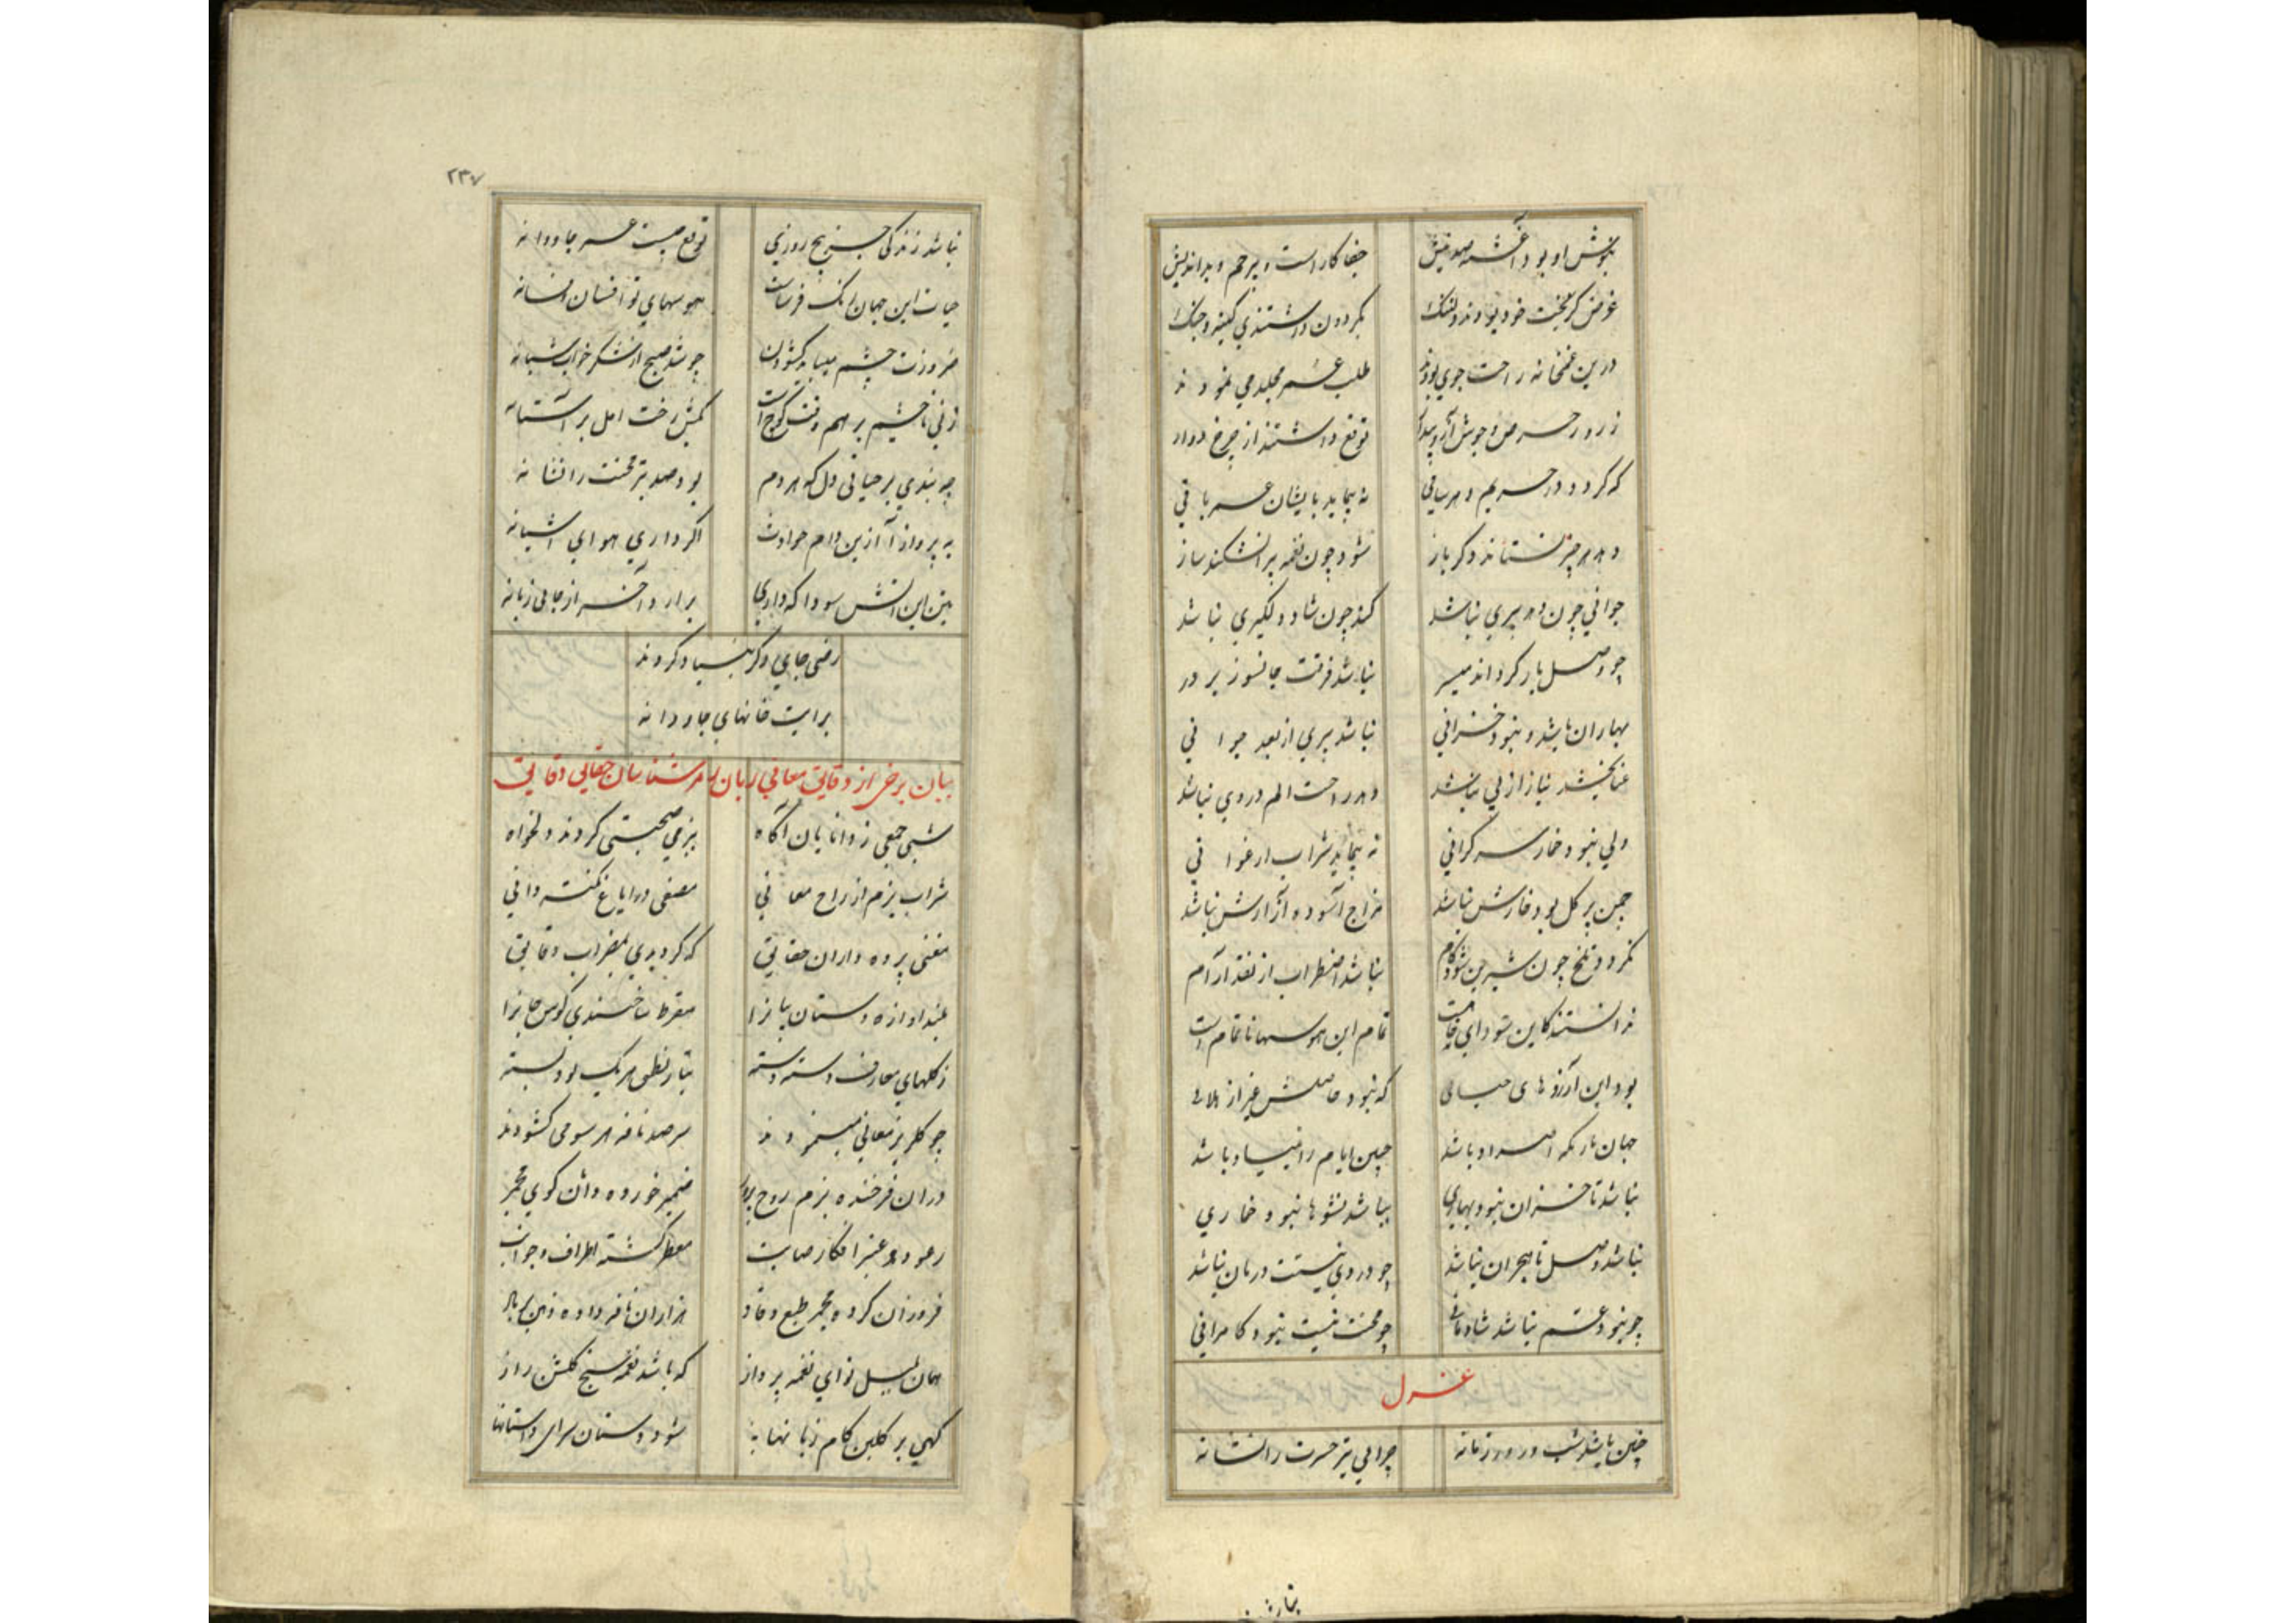 بنوشش او بود آغشته صد نیش جفاکار است و بیرحم و بداندیش
غرض کز بخت خود بودند دلتنگ بگردون داشتندی کینه و جنگ
درین غمخانه راحت جوی بودند طلب عمر مخلد می نمودند
ز روی حرص و جوش آز و پندار توقع داشتند از چرخ دوار
که گردد در حریم دهر ساقی نه پیماید بایشان عمر باقی
دهد هر چیز نستاند دگر باز شود چون نغمه پر نشکند ساز
جوانی چون دهد پیری نباشد کند چون شاد دلگیری نباشد
چو وصل یار گرداند میسر نباشد فرقت جانسوز بر در
بهاران باشد و نبود خزانی نباشد پیری از بعد جوانی
غنا بخشد نیاز از پی نباشد دهد راحت الم در وی نباشد
ولی نبود خمار سر گرانی نه پیماید شراب ارغوانی
چمن پر گل بود خارش نباشد مزاج آسوده آزارش نباشد
نگردد تلخ چون شیرین شود کام نباشد اضطراب از نقد آرام
ندانستند کاین سودای خامست تمام این هوسها ناتمام است
بود این آرزوهای خیالی که نبود حاصلش غیر از ملالی
جهان تا بر که اضداد باشد چنین ایام را بنیاد باشد
نباشد تا خزان نبود بهاری نباشد نشوها نبود خماری
نباشد وصل تا هجران نباشد چو دردی نیست درمان نباشد
چو نبود غم نباشد شادمانی چو محنت نیست نبود کامرانی
غزل
چنین باشد شب و روز زمانه چرایی تیر حسرت را نشانه
نباشد
۲۳۷
نباشد زندگی جز پنج روزی توقع چیست عمر جاودانه
حیات این جهان رنگ فرسات هوسهای تو افسان افسانه
ضرورت چشم میباید گشودن چو شد صبح از شکر خواب شبانه
زنی تا چشم بر هم وقت کوچ است بکش رخت امل بر آستانه
چه بندی بر حیاتی دل که هر دم بود صد تیر محنت را نشانه
به پرواز آ ازین دام حوادث اگر داری هوای آشیانه
ببین این آتش سودا که داری برآرد آخر از جایی زبانه
رضی جای دگر بنیاد کردند
برایت خانهای جاودانه
بیان برخی از دقایق معانی زبان رمز شناسان حقایق دقایق
شبی جمعی ز دانایان آگاه ببزمی صحبتی کردند دلخواه
شراب بزم از راح معانی مصفی در ایاغ نکته دانی
مغنی پرده داران حقایق که کردیدی بمضراب دقایق
بلند اوازه دستان بیانرا مقرط ساختندی گوش جانرا
ز گلهای معارف دسته دسته بتار نطق هر یک بود بسته
چو گلریز معانی مینمودند سر صد نافه هر سو می گشودند
دران فرخنده بزم روح پرور ضمیر خورده دان گوی مجمر
ز عود و عنبر افکار صایب معطر گشته اطراف و جوانب
فروزان کرده مجمر طبع وقاد هزاران نافه داده ذهن بر باد
همان بلبل نوای نغمه پرداز که باشد نغمه سنج گلشن راز
گهی بر گلبن کام زبانها به شود دستان سرای داستانها